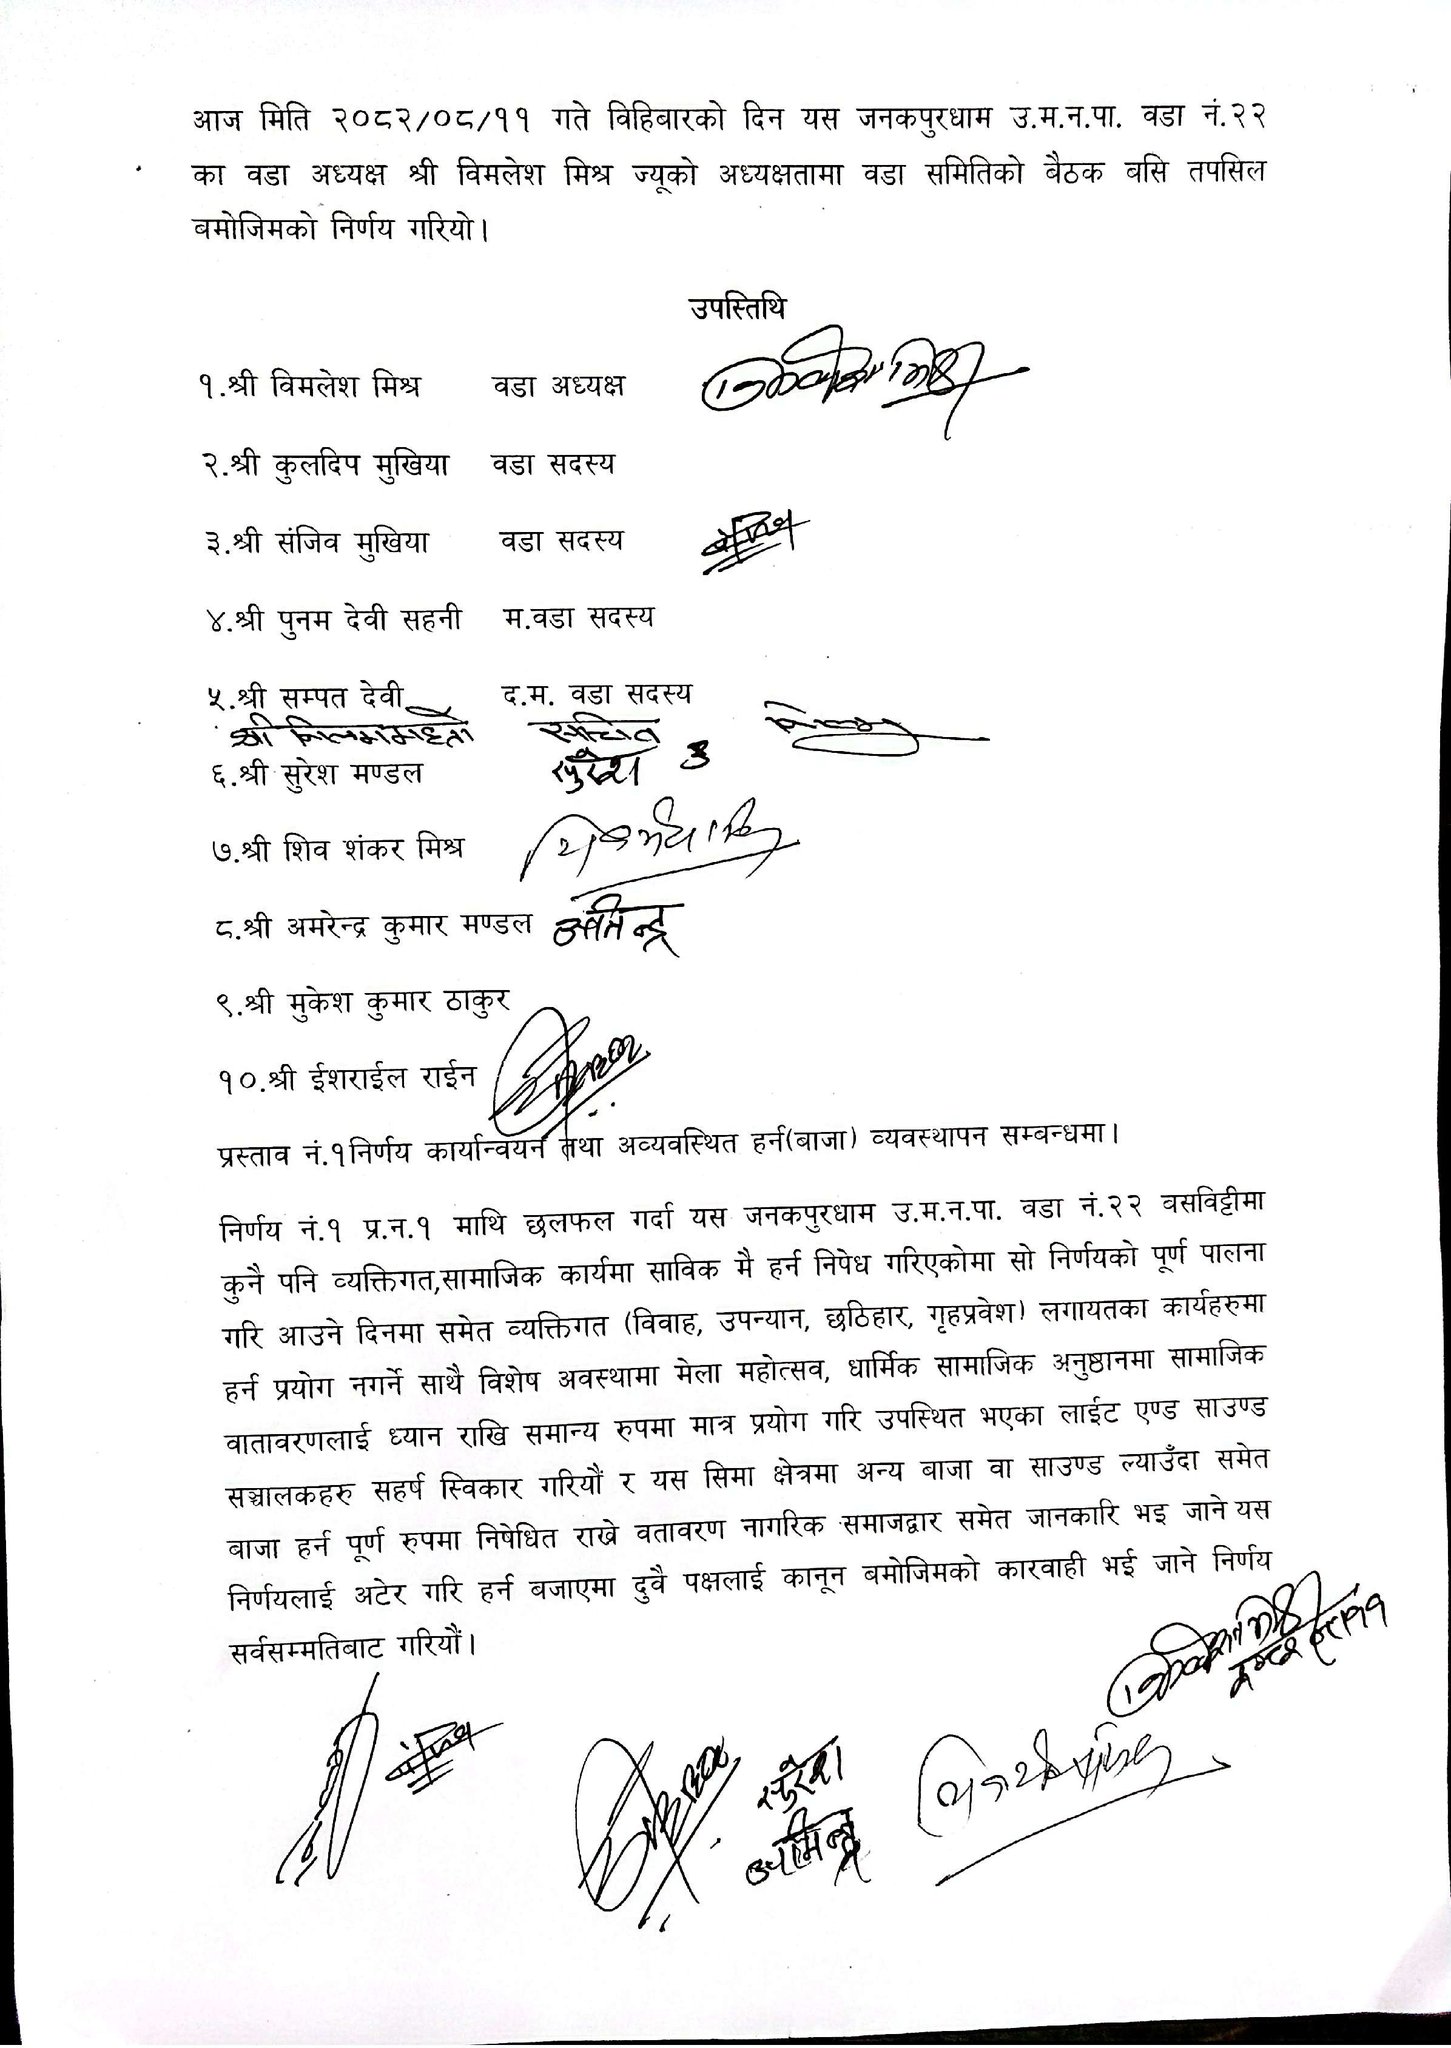 आज मिति २०८२/०८/११ गते विहिबारको दिन यस जनकपुरधाम उ.म.न.पा. वडा नं.२२
का वडा अध्यक्ष श्री विमलेश मिश्र ज्यूको अध्यक्षतामा वडा समितिको बैठक बसि तपसिल
बमोजिमको निर्णय गरियो।
उपस्तिथि
१.श्री विमलेश मिश्र वडा अध्यक्ष
२.श्री कुलदिप मुखिया वडा सदस्य
३.श्री संजिव मुखिया वडा सदस्य
४.श्री पुनम देवी सहनी म.वडा सदस्य
५.श्री सम्पत देवी द.म. वडा सदस्य
श्री सचिव
६.श्री सुरेश मण्डल सुरेश
७.श्री शिव शंकर मिश्र
८.श्री अमरेन्द्र कुमार मण्डल
९.श्री मुकेश कुमार ठाकुर
१०.श्री ईशराईल राईन
प्रस्ताव नं.१निर्णय कार्यान्वयन तथा अव्यवस्थित हर्न(बाजा) व्यवस्थापन सम्बन्धमा।
निर्णय नं.१ प्र.न.१ माथि छलफल गर्दा यस जनकपुरधाम उ.म.न.पा. वडा नं.२२ बसविट्टीमा
कुनै पनि व्यक्तिगत,सामाजिक कार्यमा साविक मै हर्न निपेध गरिएकोमा सो निर्णयको पूर्ण पालना
गरि आउने दिनमा समेत व्यक्तिगत (विवाह, उपन्यान, छठिहार, गृहप्रवेश) लगायतका कार्यहरुमा
हर्न प्रयोग नगर्ने साथै विशेष अवस्थामा मेला महोत्सव, धार्मिक सामाजिक अनुष्ठानमा सामाजिक
वातावरणलाई ध्यान राखि समान्य रुपमा मात्र प्रयोग गरि उपस्थित भएका लाईट एण्ड साउण्ड
सञ्चालकहरु सहर्ष स्विकार गरियौं र यस सिमा क्षेत्रमा अन्य बाजा वा साउण्ड ल्याउँदा समेत
बाजा हर्न पूर्ण रुपमा निषेधित राखे वतावरण नागरिक समाजद्वार समेत जानकारि भइ जाने यस
निर्णयलाई अटेर गरि हर्न बजाएमा दुवै पक्षलाई कानून बमोजिमको कारवाही भई जाने निर्णय
सर्वसम्मतिबाट गरियौं।
सुरेश